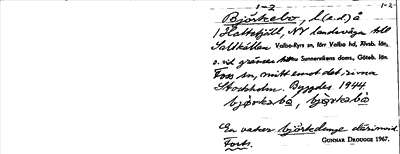 1-2
1-2-
Björkebo, l(ed)å
i Hattefjäll, NV landsvägen till
Saltkällan Valbo-Ryrs sn, förr Valbo hd, Älvsb. län,
o. vid gränsen t. Sunnervikens doms., Göteb. län.
Foss sn, mitt emot det rivna
Stockholm. Byggdes 1944.
bjørkebö, bjørkabö
En vacker björkdunge därinvid.
Forts. GUNNAR DROUGGE 1967.